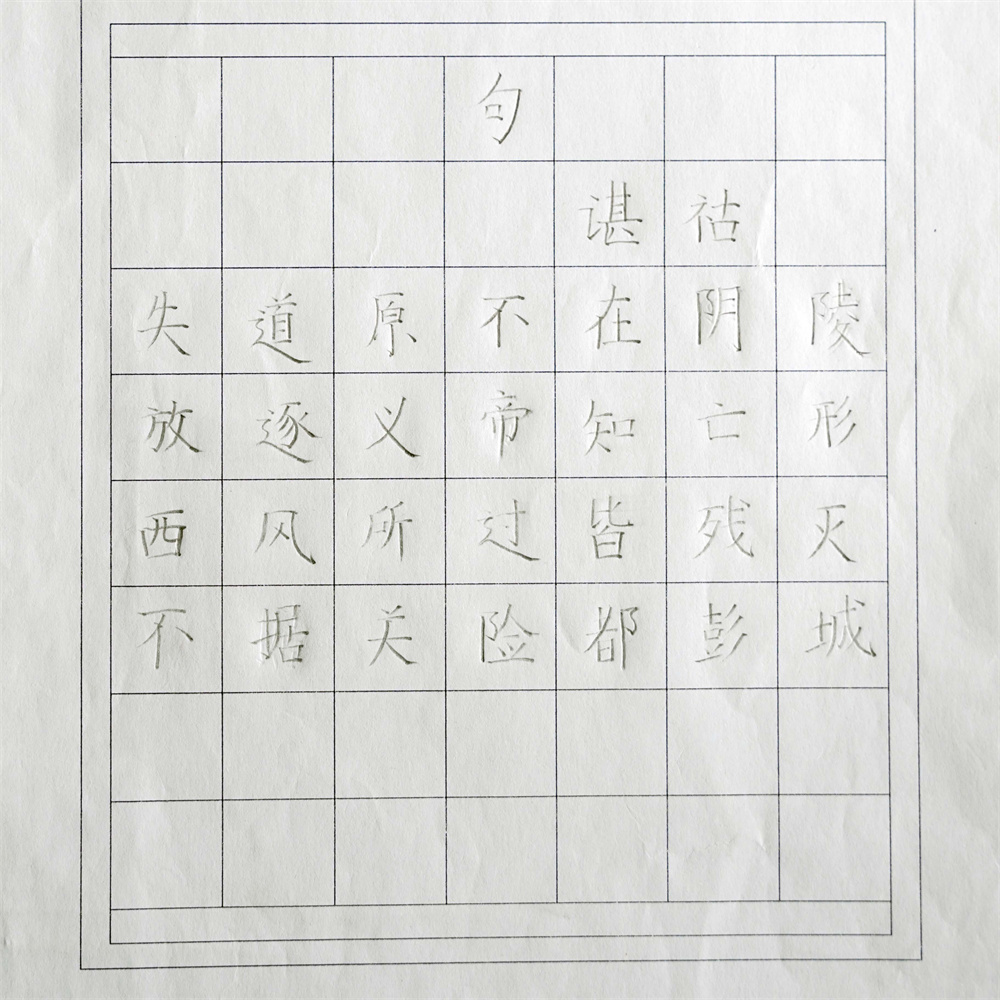 句
谌祜
失道原不在阴陵
放逐义帝知亡形
西风所过皆残灭
不据关险都彭城